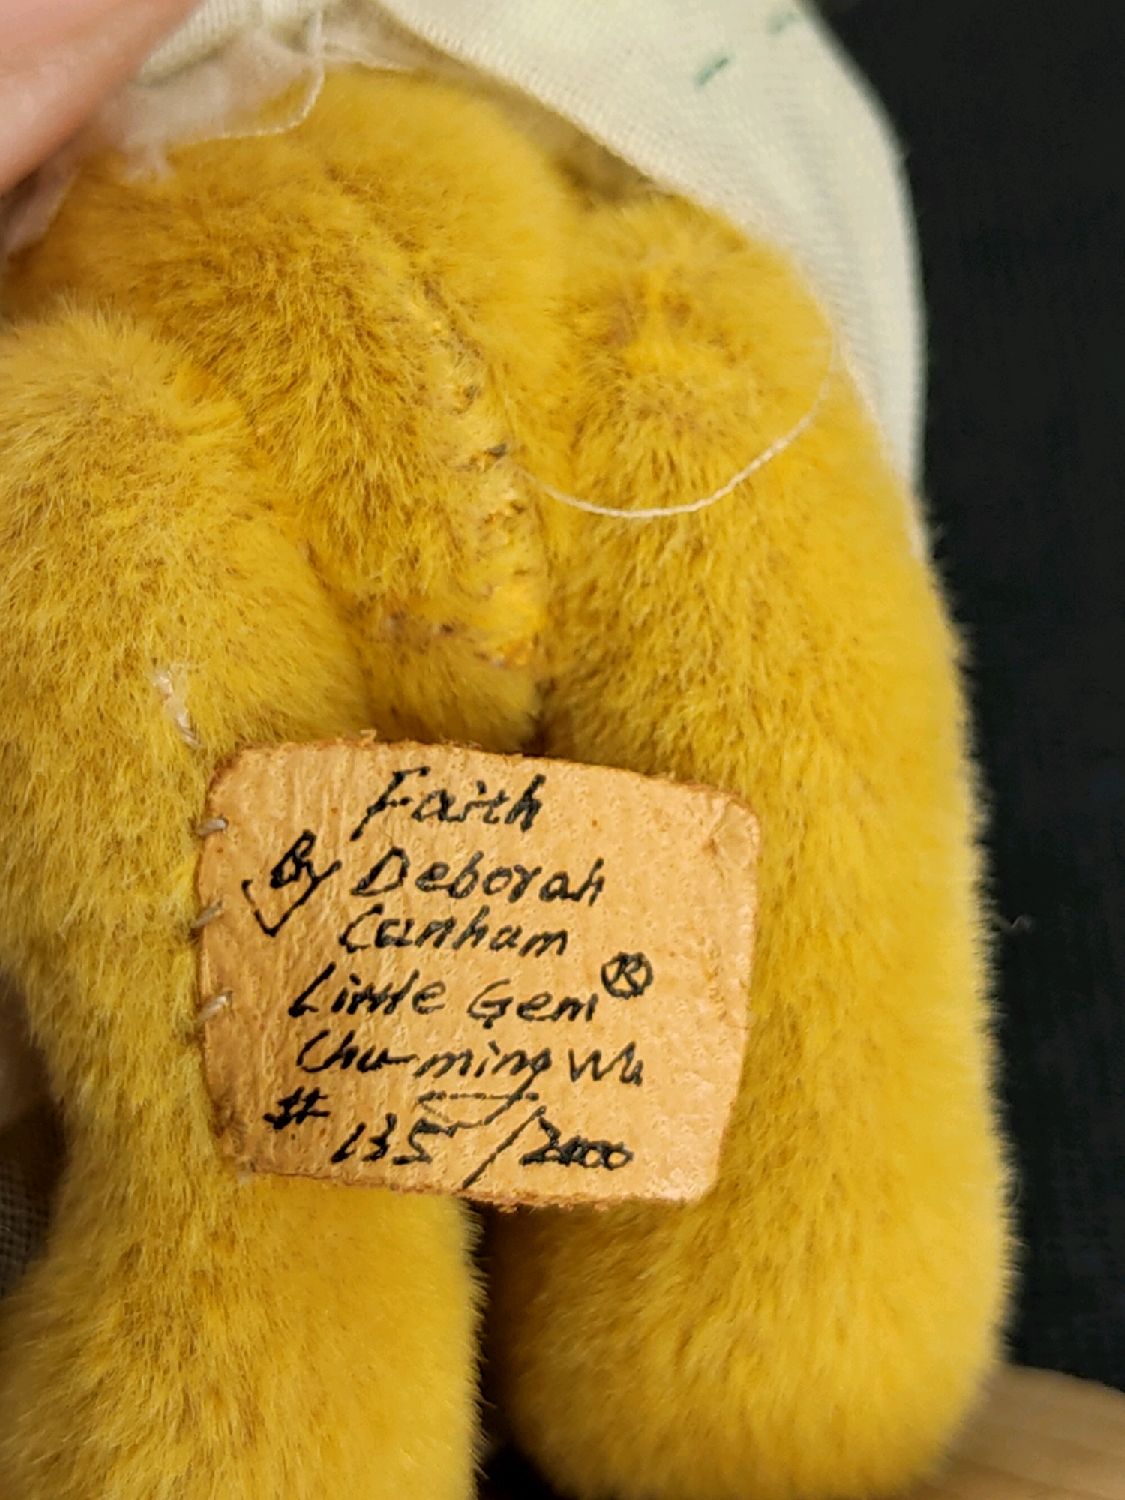 Faith
By Deborah
Canham
Little Gem®
Chu-ming Wu
# 135/2000